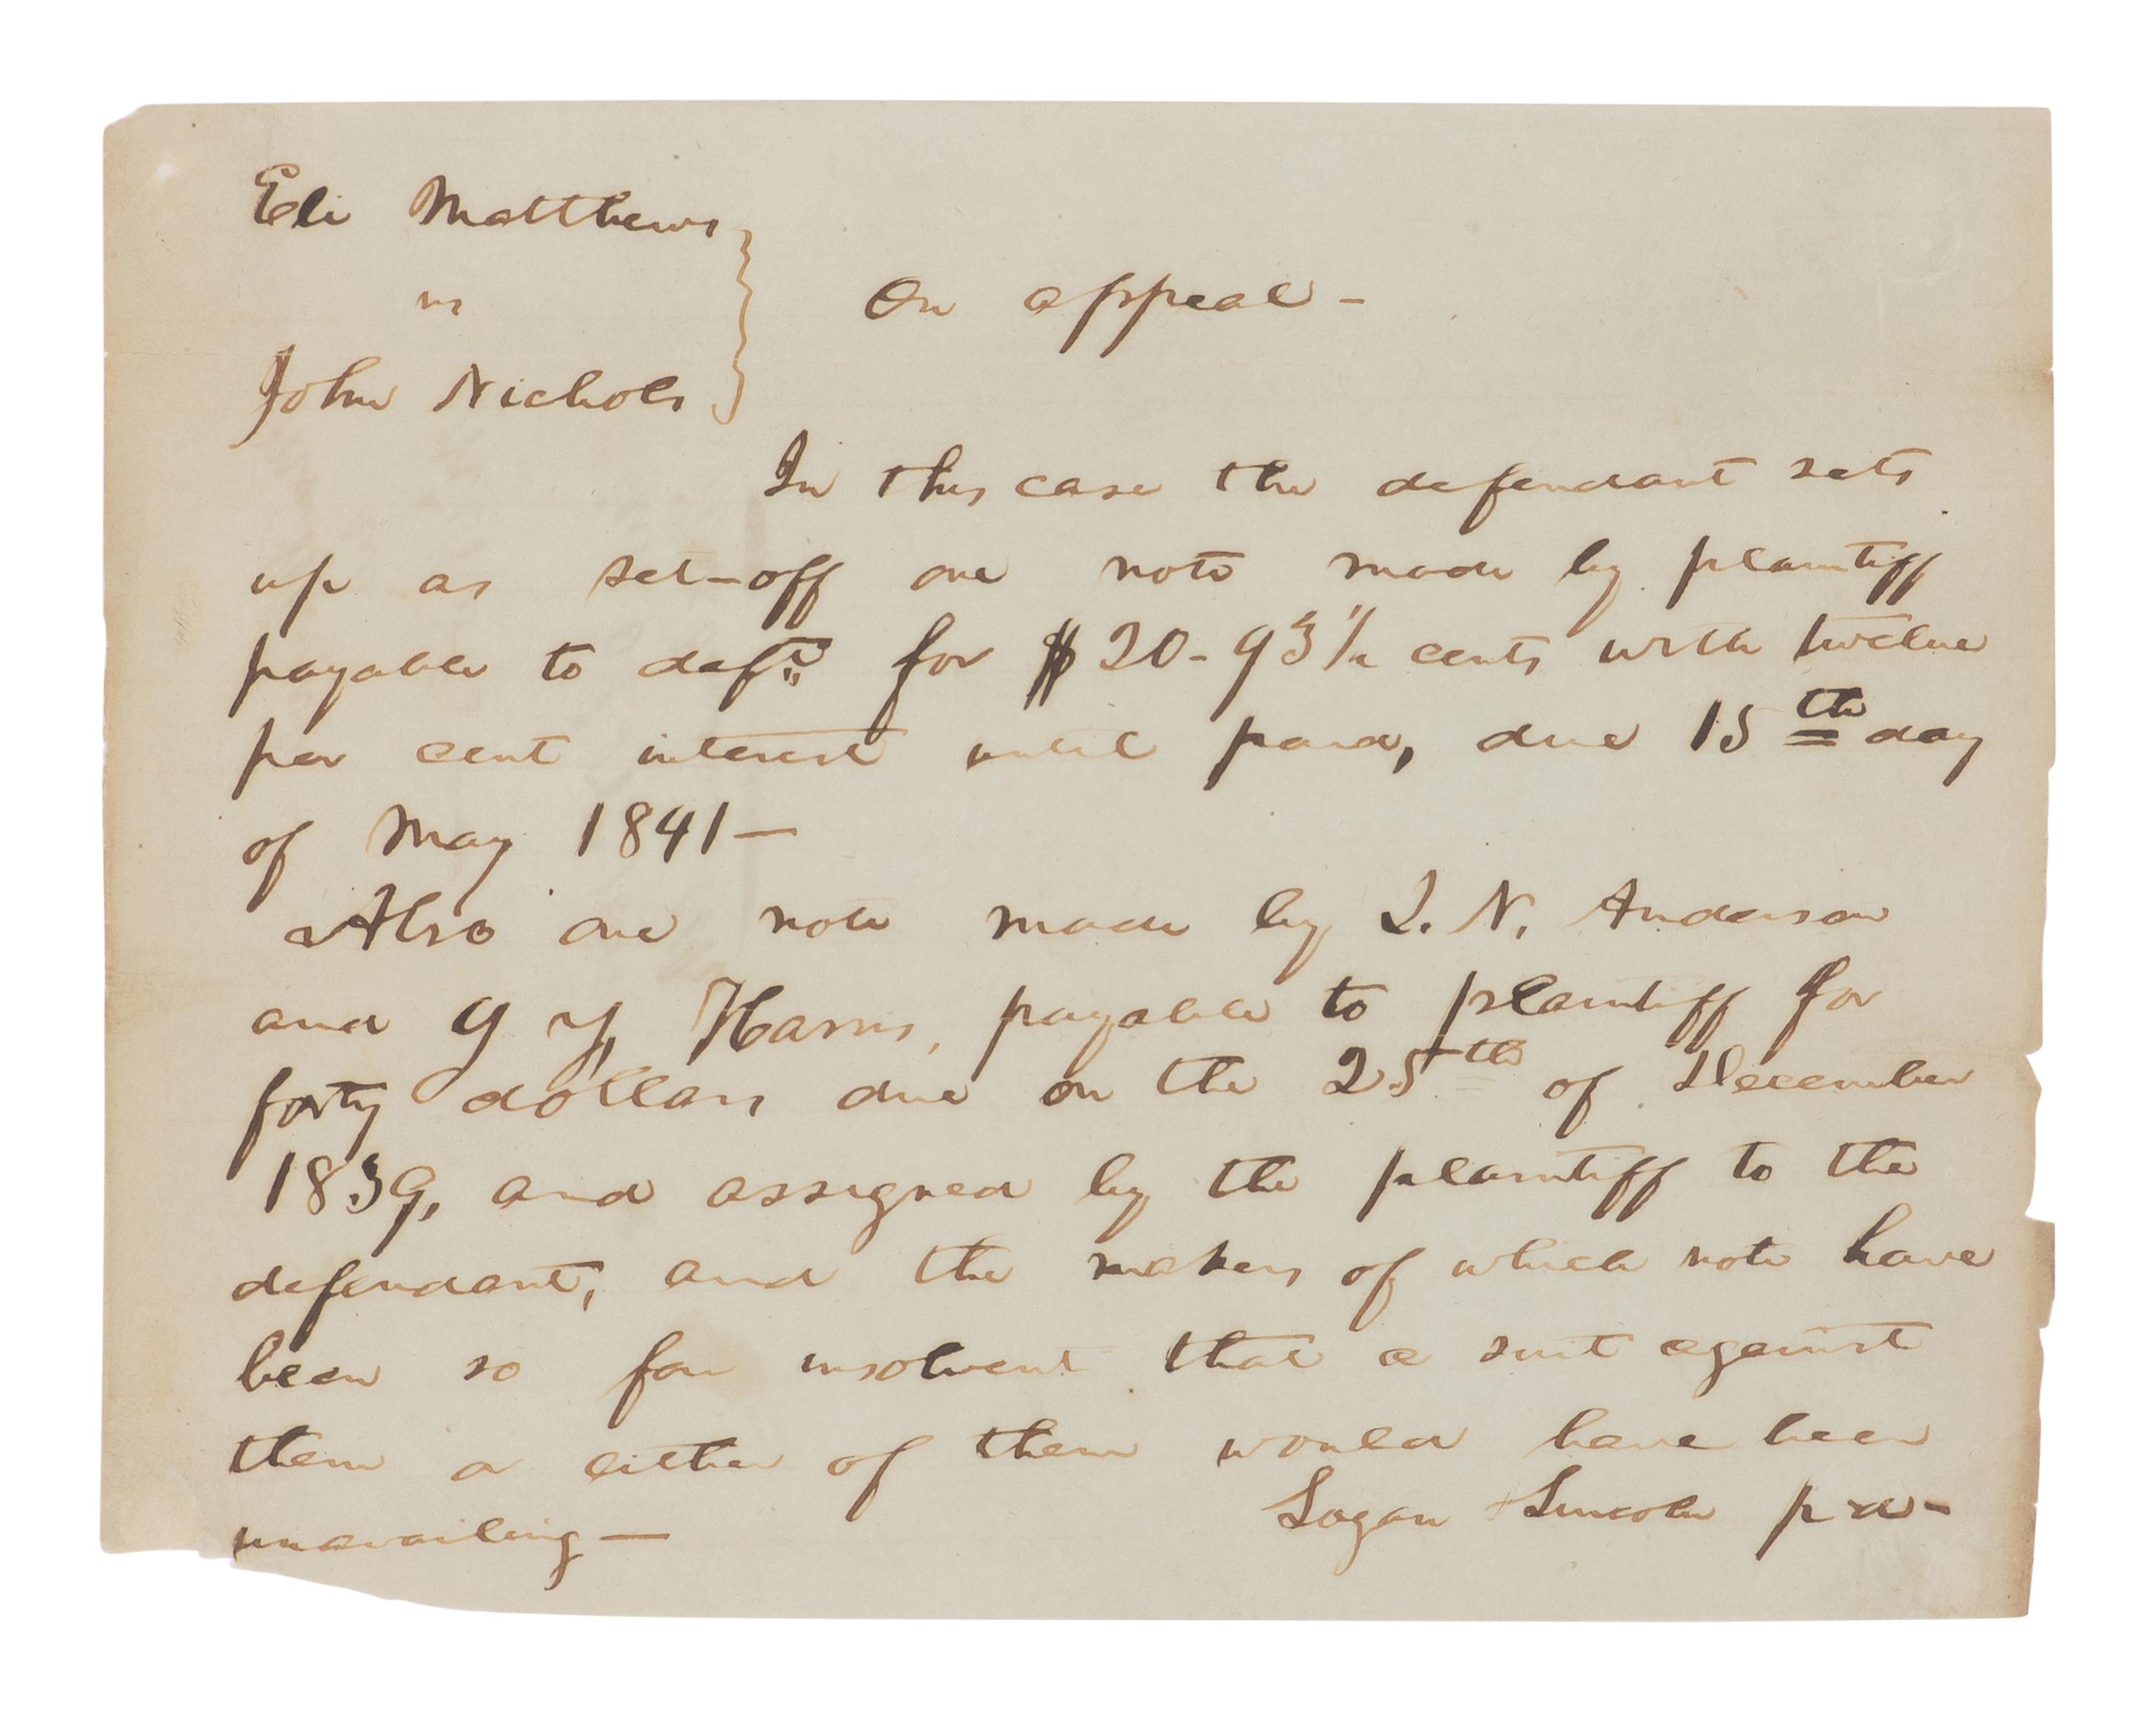 Eli Matthews
vs
On appeal –
John Nichols
In this case the defendant sets
up as set-off one note made by plaintiff
payable to deft. for $20-93 3/4 cents with twelve
per cent interest until paid, due 15th day
of May 1841 –
Also one note made by Q. N. Anderson
and G Y, Harris, payable to plaintiff for
forty dollars due on the 25th of December
1839, and assigned by the plaintiff to the
defendant, and the makers of which note have
been so far insolvent that a suit against
them or either of them would have been
unavailing –
Logan & Lincoln p d –